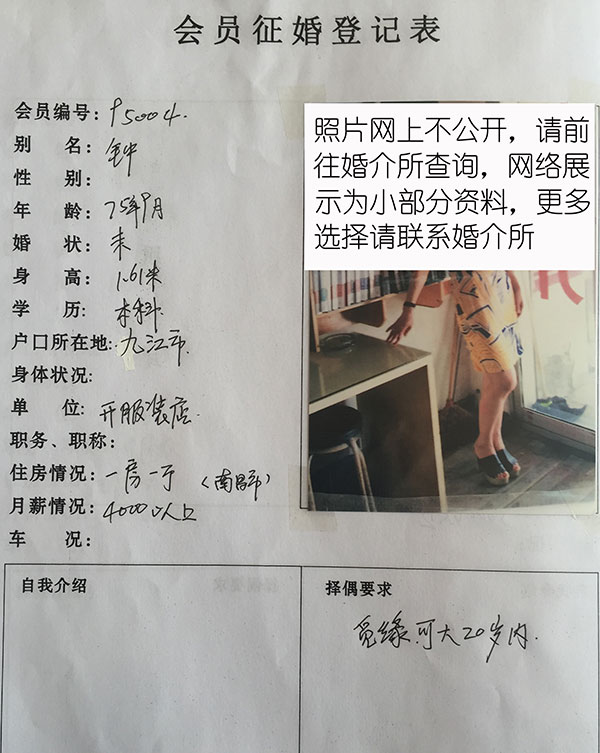 会员征婚登记表
会员编号: P5004.
别 名: 钟
性 别:
年 龄: 75年9月
婚 状: 未
身 高: 1.61米
学 历: 本科.
户口所在地: 九江市.
身体状况:
单 位: 开服装店.
职务、职称:
住房情况: 一房一厅 (南昌市)
月薪情况: 4000以上
车 况:
照片网上不公开，请前
往婚介所查询，网络展
示为小部分资料，更多
选择请联系婚介所
自我介绍
择偶要求
觅缘可大20岁内.